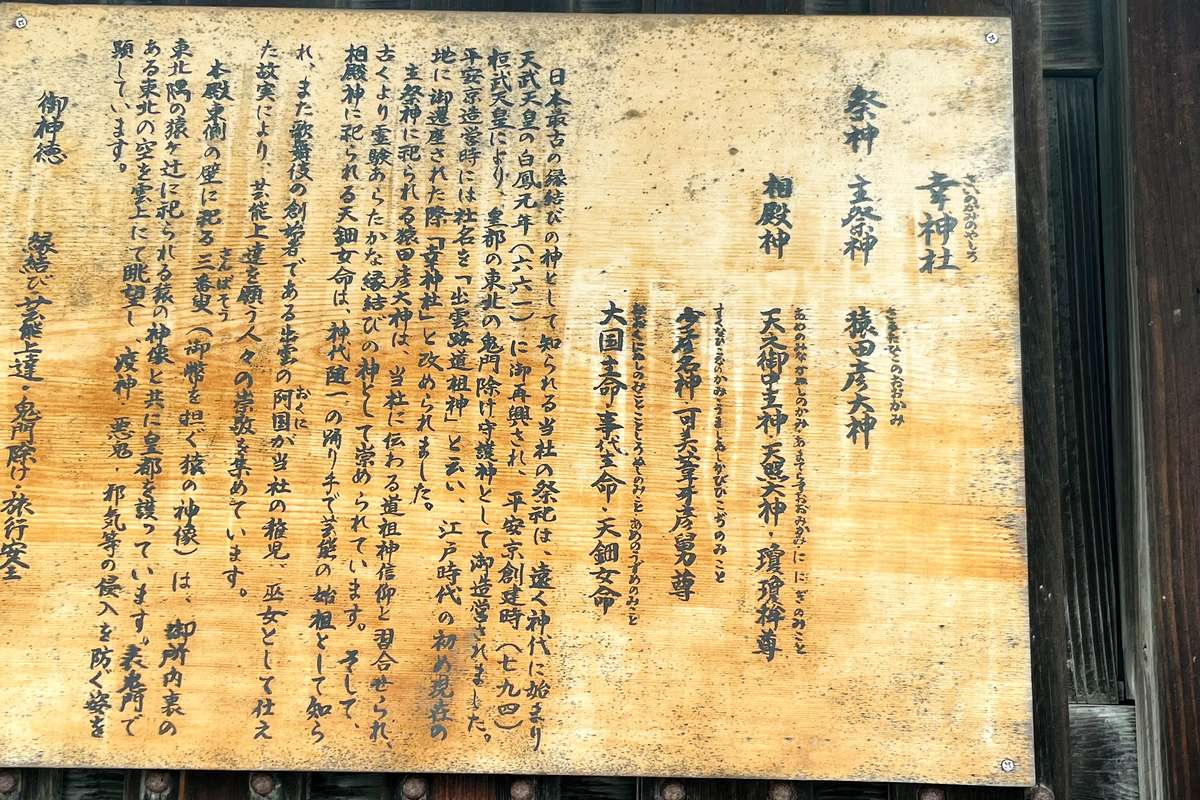 さいのかみのやしろ
幸神社
祭神 主祭神 猿田彦大神
さるたひこのおおかみ
相殿神 天之御中主神・天照大神・瓊瓊杵尊
あめのみなかぬしのかみ あまてらすおおみかみ ににぎのみこと
少名毘古那神 可美葦牙彦舅尊
すくなひこなのかみ うましあしかびひこぢのみこと
大国主命・事代主命・天鈿女命
ことしろぬしのみこと あめのうずめのみこと
日本最古の縁結びの神として知られる当社の祭祀は、遠く神代に始まり
天武天皇の白鳳元年(六六一)に御再興され、平安京創建時(七九四)
桓武天皇により、皇都の東北の鬼門除け守護神として御造営されました。
平安京造営時には社名を「出雲路道祖神」と云い、江戸時代の初め現在の
地に御遷座された際「幸神社」と改められました。
主祭神に祀られる猿田彦大神は、当社に伝わる道祖神信仰と習合せられ、
古くより霊験あらたかな縁結びの神として崇められています。そして、
相殿神に祀られる天鈿女命は、神代随一の踊り手で芸能の始祖として知ら
れ、また歌舞伎の創始者である出雲の阿国が当社の稚児、巫女として仕え
おくに
た故実により、芸能上達を願う人々の崇敬を集めています。
本殿東側の壁に祀る三番叟(御幣を担ぐ猿の神像)は、御所内裏の
さんばそう
東北隅の猿ヶ辻に祀られる猿の神像と共に皇都を護っています。表鬼門で
ある東北の空を雲上にて眺望し、疫神・悪鬼・邪気等の侵入を防ぐ姿を
顕しています。
御神徳 縁結び・芸能上達・鬼門除け・旅行安全